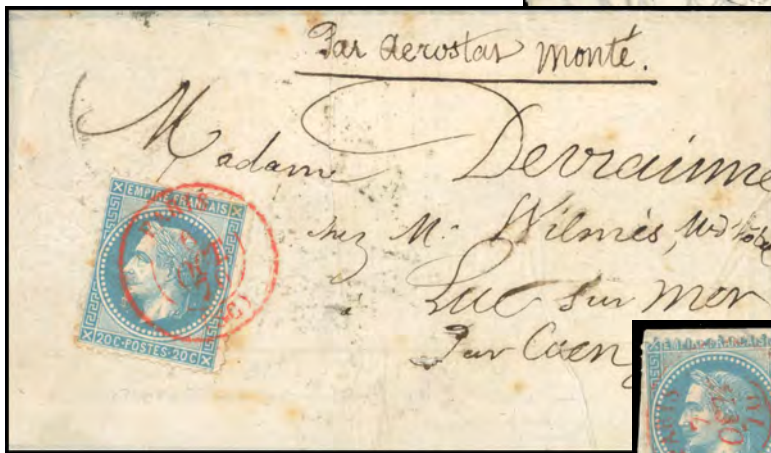 Par aerostat monté.
Madame Devraimne
chez M. Wilmès, Md
à Luc sur mer
Par Caen
EMPIRE FRANÇAIS
20C·POSTES·20C
PARIS